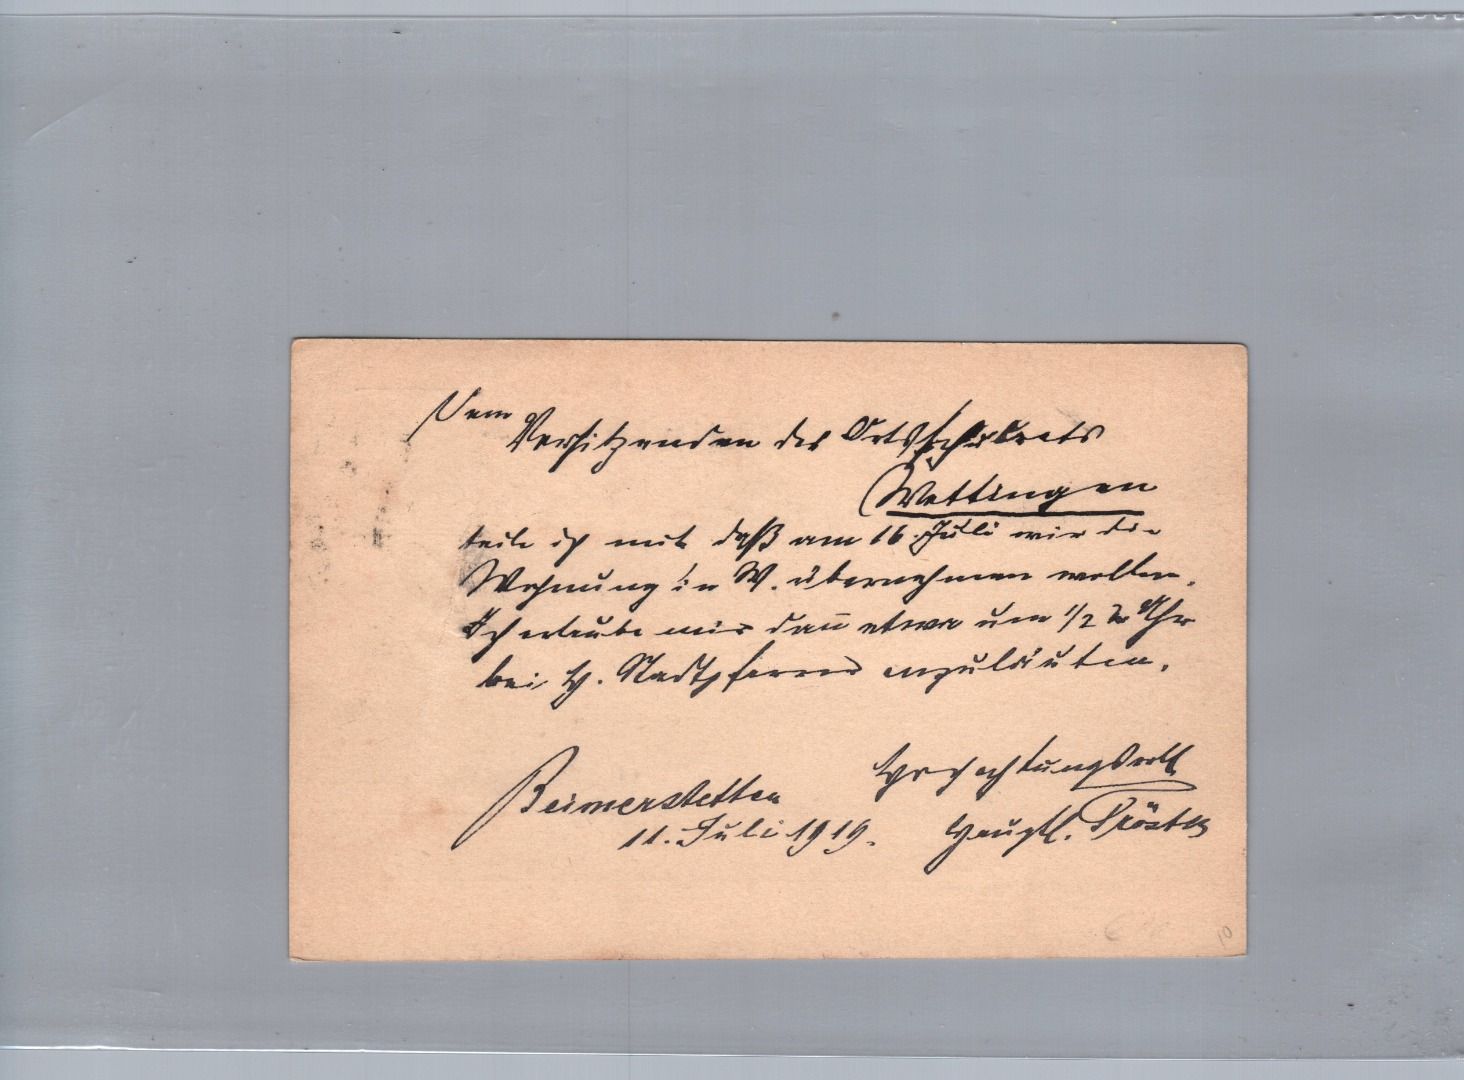 Dem
Vorsitzenden des Ortsschulrats
Wettingen
teile ich mit daß am 16. Juli wir die
Wohnung in W. übernehmen wollen.
Ich erlaube mir dann etwa um 1/2 2 Uhr
bei H. Stadtpfarrer anzuläuten.
Hochachtungsvoll
Beimerstetten
11. Juli 1919.
Hauptl.
10